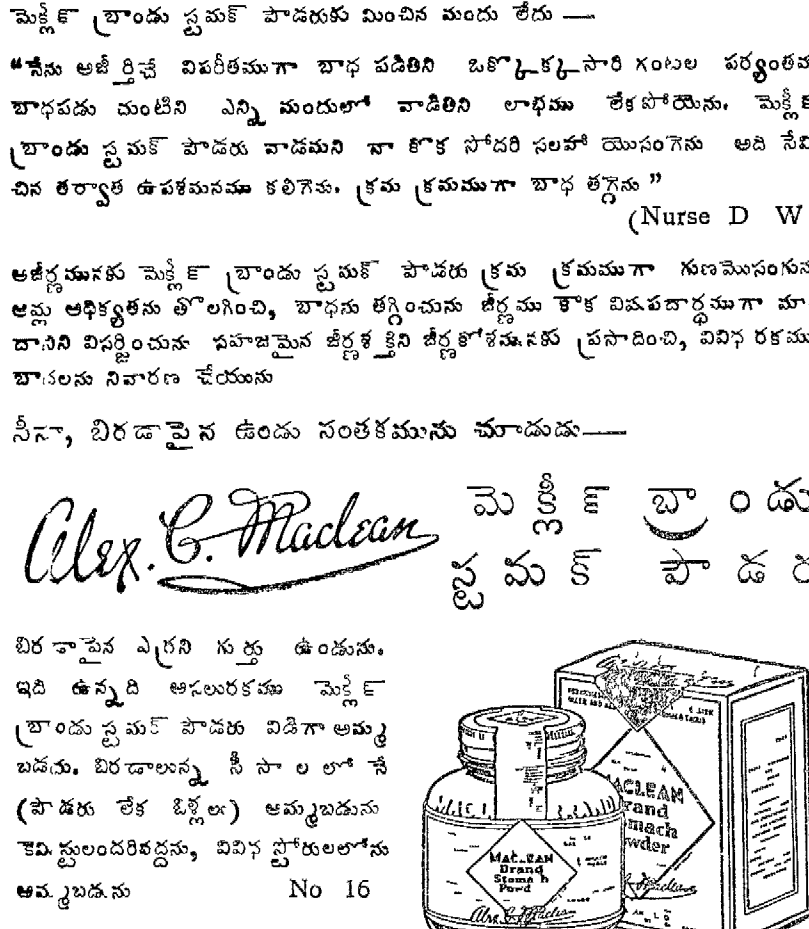 మెక్లీన్ బ్రాండు స్టమక్ పౌడరుకు మించిన మందు లేదు —
“నేను అజీర్తిచే విపరీతముగా బాధ పడితిని ఒక్కొక్కసారి గంటల పర్యంతము
బాధపడు చుంటిని ఎన్ని మందులో వాడితిని లాభము లేకపోయెను. మెక్లీన్
బ్రాండు స్టమక్ పౌడరు వాడమని నా కొక సోదరి సలహా యొసంగెను అది సేవిం
చిన తర్వాత ఉపశమనము కలిగెను. క్రమ క్రమముగా బాధ తగ్గెను ”
(Nurse D W
అజీర్ణమునకు మెక్లీన్ బ్రాండు స్టమక్ పౌడరు క్రమ క్రమముగా గుణమొసంగును
ఆమ్ల ఆధిక్యతను తొలగించి, బాధను తగ్గించును జీర్ణము కాక విషపదార్థముగా మా
దానిని విసర్జించును సహజమైన జీర్ణశక్తిని జీర్ణకోశమునకు ప్రసాదించి, వివిధ రకము
బాధలను నివారణ చేయును
సీసా, బిరడాపైన ఉండు సంతకమును చూడుడు—
Alex. C. Maclean
మెక్లీన్ బ్రాండు
స్టమక్ పౌడరు
బిరడాపైన ఎర్రని గుర్తు ఉండును.
ఇది ఉన్నది అసలురకము మెక్లీన్
బ్రాండు స్టమక్ పౌడరు విడిగా అమ్మ
బడను. బిరడాలున్న సీసాలలోనే
(పౌడరు లేక బిళ్లలు) అమ్మబడును
కెమిస్టులందరివద్దను, వివిధ స్టోరులలోను
అమ్మబడును No 16
MACLEAN
Brand
Stomach
Powder
MACLEAN
Brand
Stomach
Powd
Alex C Maclean